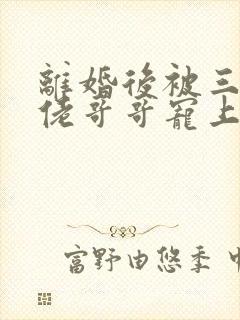 離婚後被三
佬哥哥寵上
富野由悠季